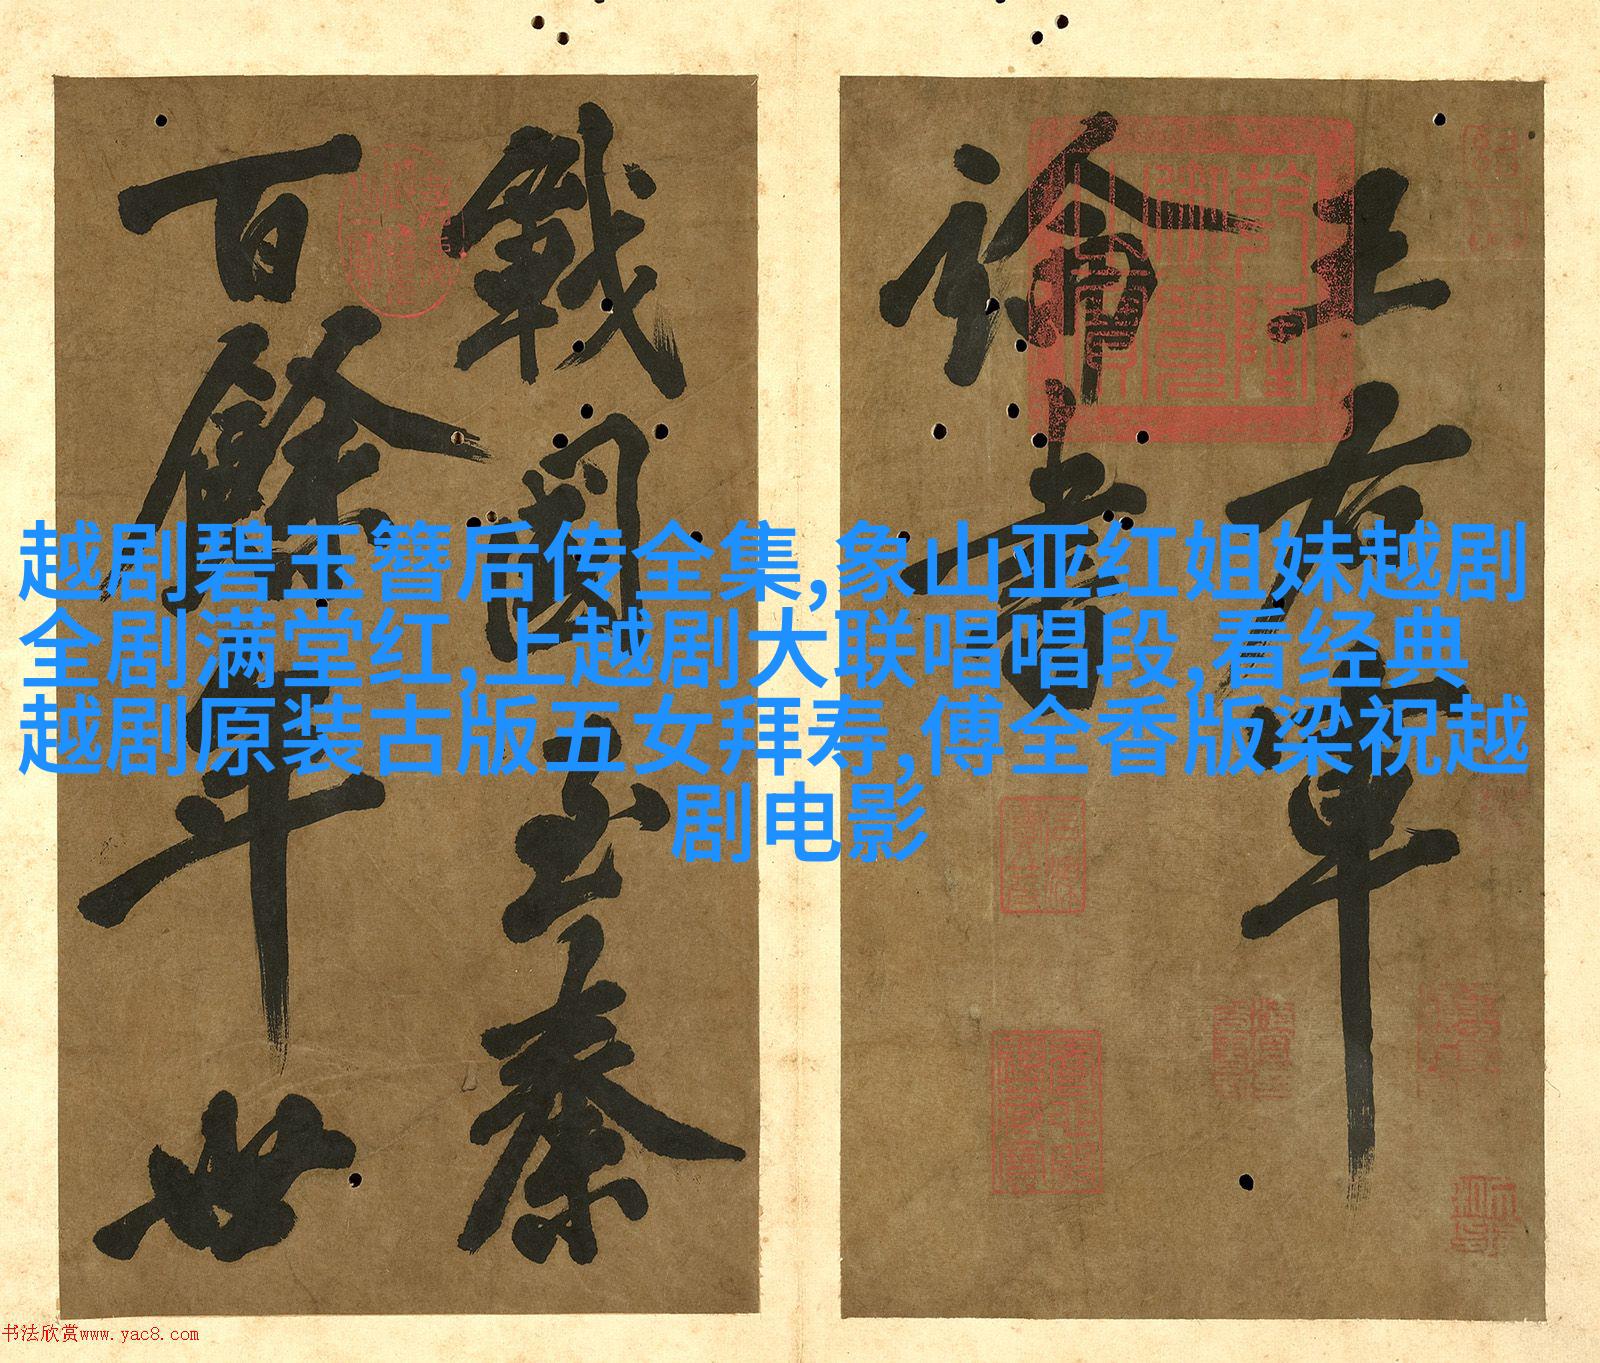 越剧碧玉簪后传全集,象山亚红姐妹越剧
全剧满堂红,上越剧大联唱唱段,看经典
越剧原装古版五女拜寿,傅全香版梁祝越
剧电影
王右军
論書
戰國至秦
百餘年世
乾隆御覽之寶
书法欣赏www.yac8.com